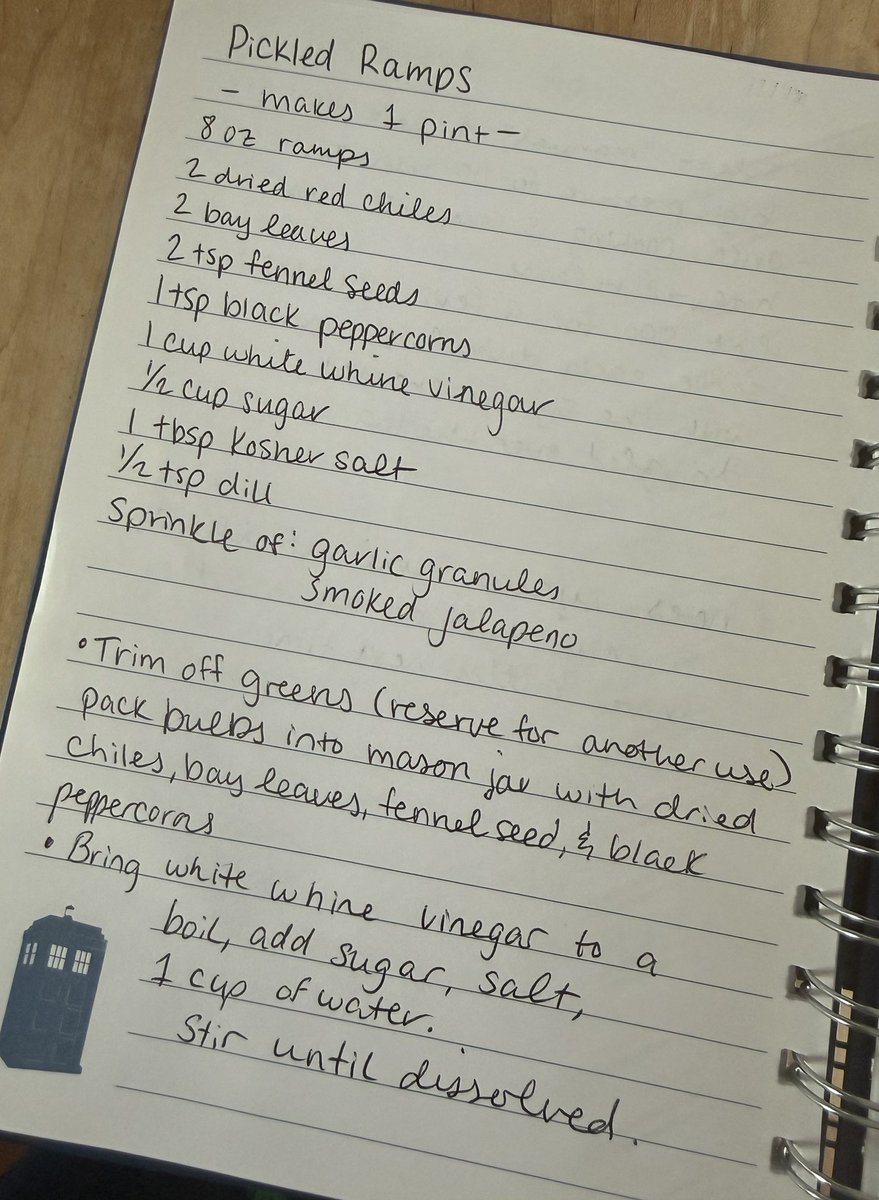 Pickled Ramps
- makes 1 pint -
8 oz ramps
2 dried red chiles
2 bay leaves
2 tsp fennel seeds
1 tsp black peppercorns
1 cup white whine vinegar
1/2 cup sugar
1 tbsp kosher salt
1/2 tsp dill
Sprinkle of: garlic granules
smoked jalapeno
• Trim off greens (reserve for another use)
pack bulbs into mason jar with dried
chiles, bay leaves, fennel seed, & black
peppercorns
• Bring white whine vinegar to a
boil, add sugar, salt,
1 cup of water.
Stir until dissolved.